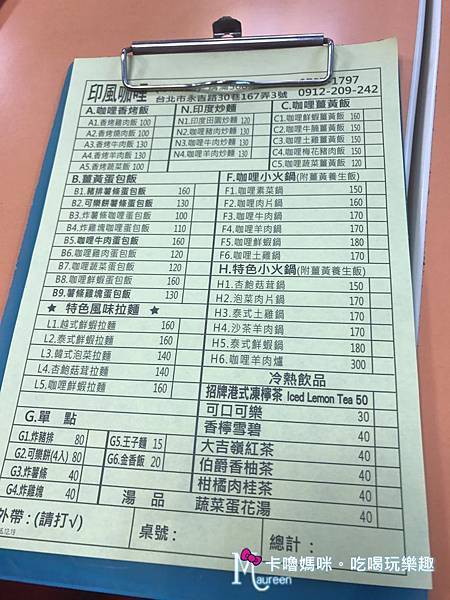 印風咖哩
1797
台北市永吉路30巷167弄3號
0912-209-242
A.咖哩香烤飯
A1.香烤雞肉飯 100
A2.香烤燒肉飯 100
A3.香烤牛肉飯 130
A4.香烤羊肉飯 130
A5.香烤蔬菜飯 100
N.印度炒麵
N1.印度田園炒麵 120
N2.咖哩豬肉炒麵 130
N3.咖哩牛肉炒麵 130
N4.咖哩羊肉炒麵 130
C.咖哩薑黃飯
C1.咖哩鮮蝦薑黃飯 160
C2.咖哩牛腩薑黃飯 150
C3.咖哩土雞薑黃飯 150
C4.咖哩梅花豬肉飯 150
C5.咖哩蔬菜薑黃飯 120
B.薑黃蛋包飯
B1.豬排薯條蛋包飯 160
B2.可樂餅薯條蛋包飯 130
B3.炸薯條咖哩蛋包飯 100
B4.炸雞塊咖哩蛋包飯 110
B5.咖哩牛肉蛋包飯 160
B6.咖哩雞肉蛋包飯 120
B7.咖哩蔬菜蛋包飯 120
B8.咖哩鮮蝦蛋包飯 160
B9.薯條雞塊蛋包飯 130
F.咖哩小火鍋(附薑黃養生飯)
F1.咖哩素菜鍋 150
F2.咖哩肉片鍋 150
F3.咖哩牛肉鍋 150
F4.咖哩羊肉鍋 150
F5.咖哩鮮蝦鍋 180
F6.咖哩土雞鍋 150
H.特色小火鍋(附薑黃養生飯)
H1.杏鮑菇茸鍋 150
H2.泡菜肉片鍋 150
H3.泰式土雞鍋 150
H4.沙茶羊肉鍋 150
H5.泰式鮮蝦鍋 180
H6.咖哩羊肉爐 300
★ 特色風味拉麵 ★
L1.越式鮮蝦拉麵 160
L2.泰式鮮蝦拉麵 160
L3.韓式泡菜拉麵 140
L4.杏鮑菇茸拉麵 140
L5.咖哩鮮蝦拉麵 160
冷熱飲品
招牌港式凍檸茶 Iced Lemon Tea 50
可口可樂 30
香檸雪碧 40
大吉嶺紅茶 40
伯爵香柚茶 40
柑橘肉桂茶 40
G.單 點
G1.炸豬排 80
G2.可樂餅(4入) 80
G3.炸薯條 40
G4.炸雞塊 40
G5.王子麵 15
G6.金香飯 20
湯 品
蔬菜蛋花湯 40
外帶：(請打√)
桌號：
總計：
卡嚕媽咪。吃喝玩樂趣
Maureen